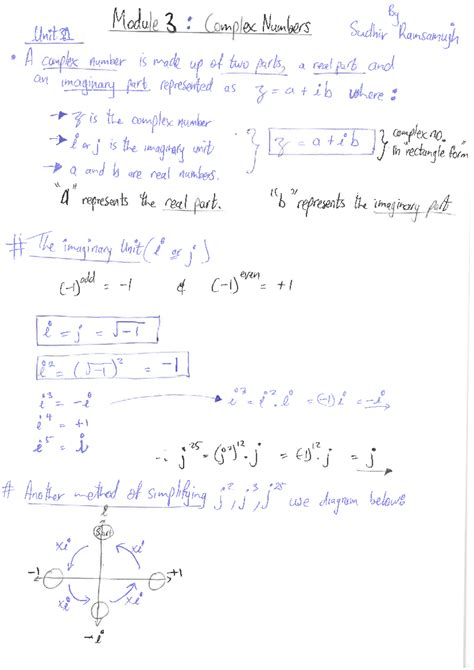 Module 3 : Complex Numbers
By
Sudhir Ramsamujh
Unit 31
• A complex number is made up of two parts, a real part and
an imaginary part represented as z = a + ib where :
→ z is the complex number
→ i or j is the imaginary unit
→ a and b are real numbers.
• } z = a + ib } complex no. in "rectangle form"
"a" represents the real part. "b" represents the imaginary part
# The imaginary Unit (i or j)
(-1)^odd = -1 & (-1)^even = +1
i = j = √-1
i² = (√-1)² = -1
i³ = -i → i³ = i².i = (-1)i = -i
i⁴ = +1
i⁵ = i
∴ j²⁵ = (j²)¹².j = (-1)¹².j = j
# Another method of simplifying j², j³, j²⁵ use diagram below:
i
Start
xi xi
-1 +1
xi xi
-i